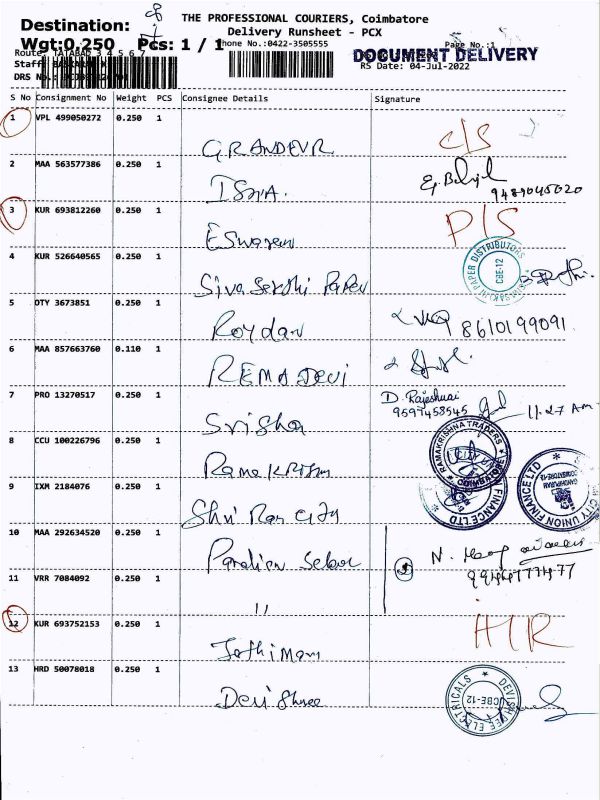 THE PROFESSIONAL COURIERS, Coimbatore
Destination:
Delivery Runsheet - PCX
Wgt:0.250 Pcs: 1 / 1
Phone No.:0422-3505555
Page No.:1
DOCUMENT DELIVERY
Route: TATABAD 3 4 5 6 7
RS Date: 04-Jul-2022
S No Consignment No Weight PCS Consignee Details Signature
1 VPL 499050272 0.250 1 GRANDEUR C/S
2 MAA 563577386 0.250 1 9489045020
3 KUR 693812260 0.250 1 Eswaren P/S
4 KUR 526640565 0.250 1 Siva Sakthi Paper
SIVASAKTHI PAPER DISTRIBUTORS CBE-12
5 OTY 3673851 0.250 1 Roydan 8610199091
6 MAA 857663760 0.110 1 REMA DEVI
7 PRO 13270517 0.250 1 Srisha D. Rajeshwari 9597458545 11.27 AM
8 CCU 100226796 0.250 1 Rama Krishn
RAMAKRISHNA TRADERS
9 IXM 2184076 0.250 1 Shri Ram City
CITY UNION FINANCE LTD
10 MAA 292634520 0.250 1 Pandian Selvar
11 VRR 7084092 0.250 1 "
12 KUR 693752153 0.250 1 Jothimani HR
13 HRD 50078018 0.250 1 Devi Shree
DEVISHREE ELECTRICALS CBE-12